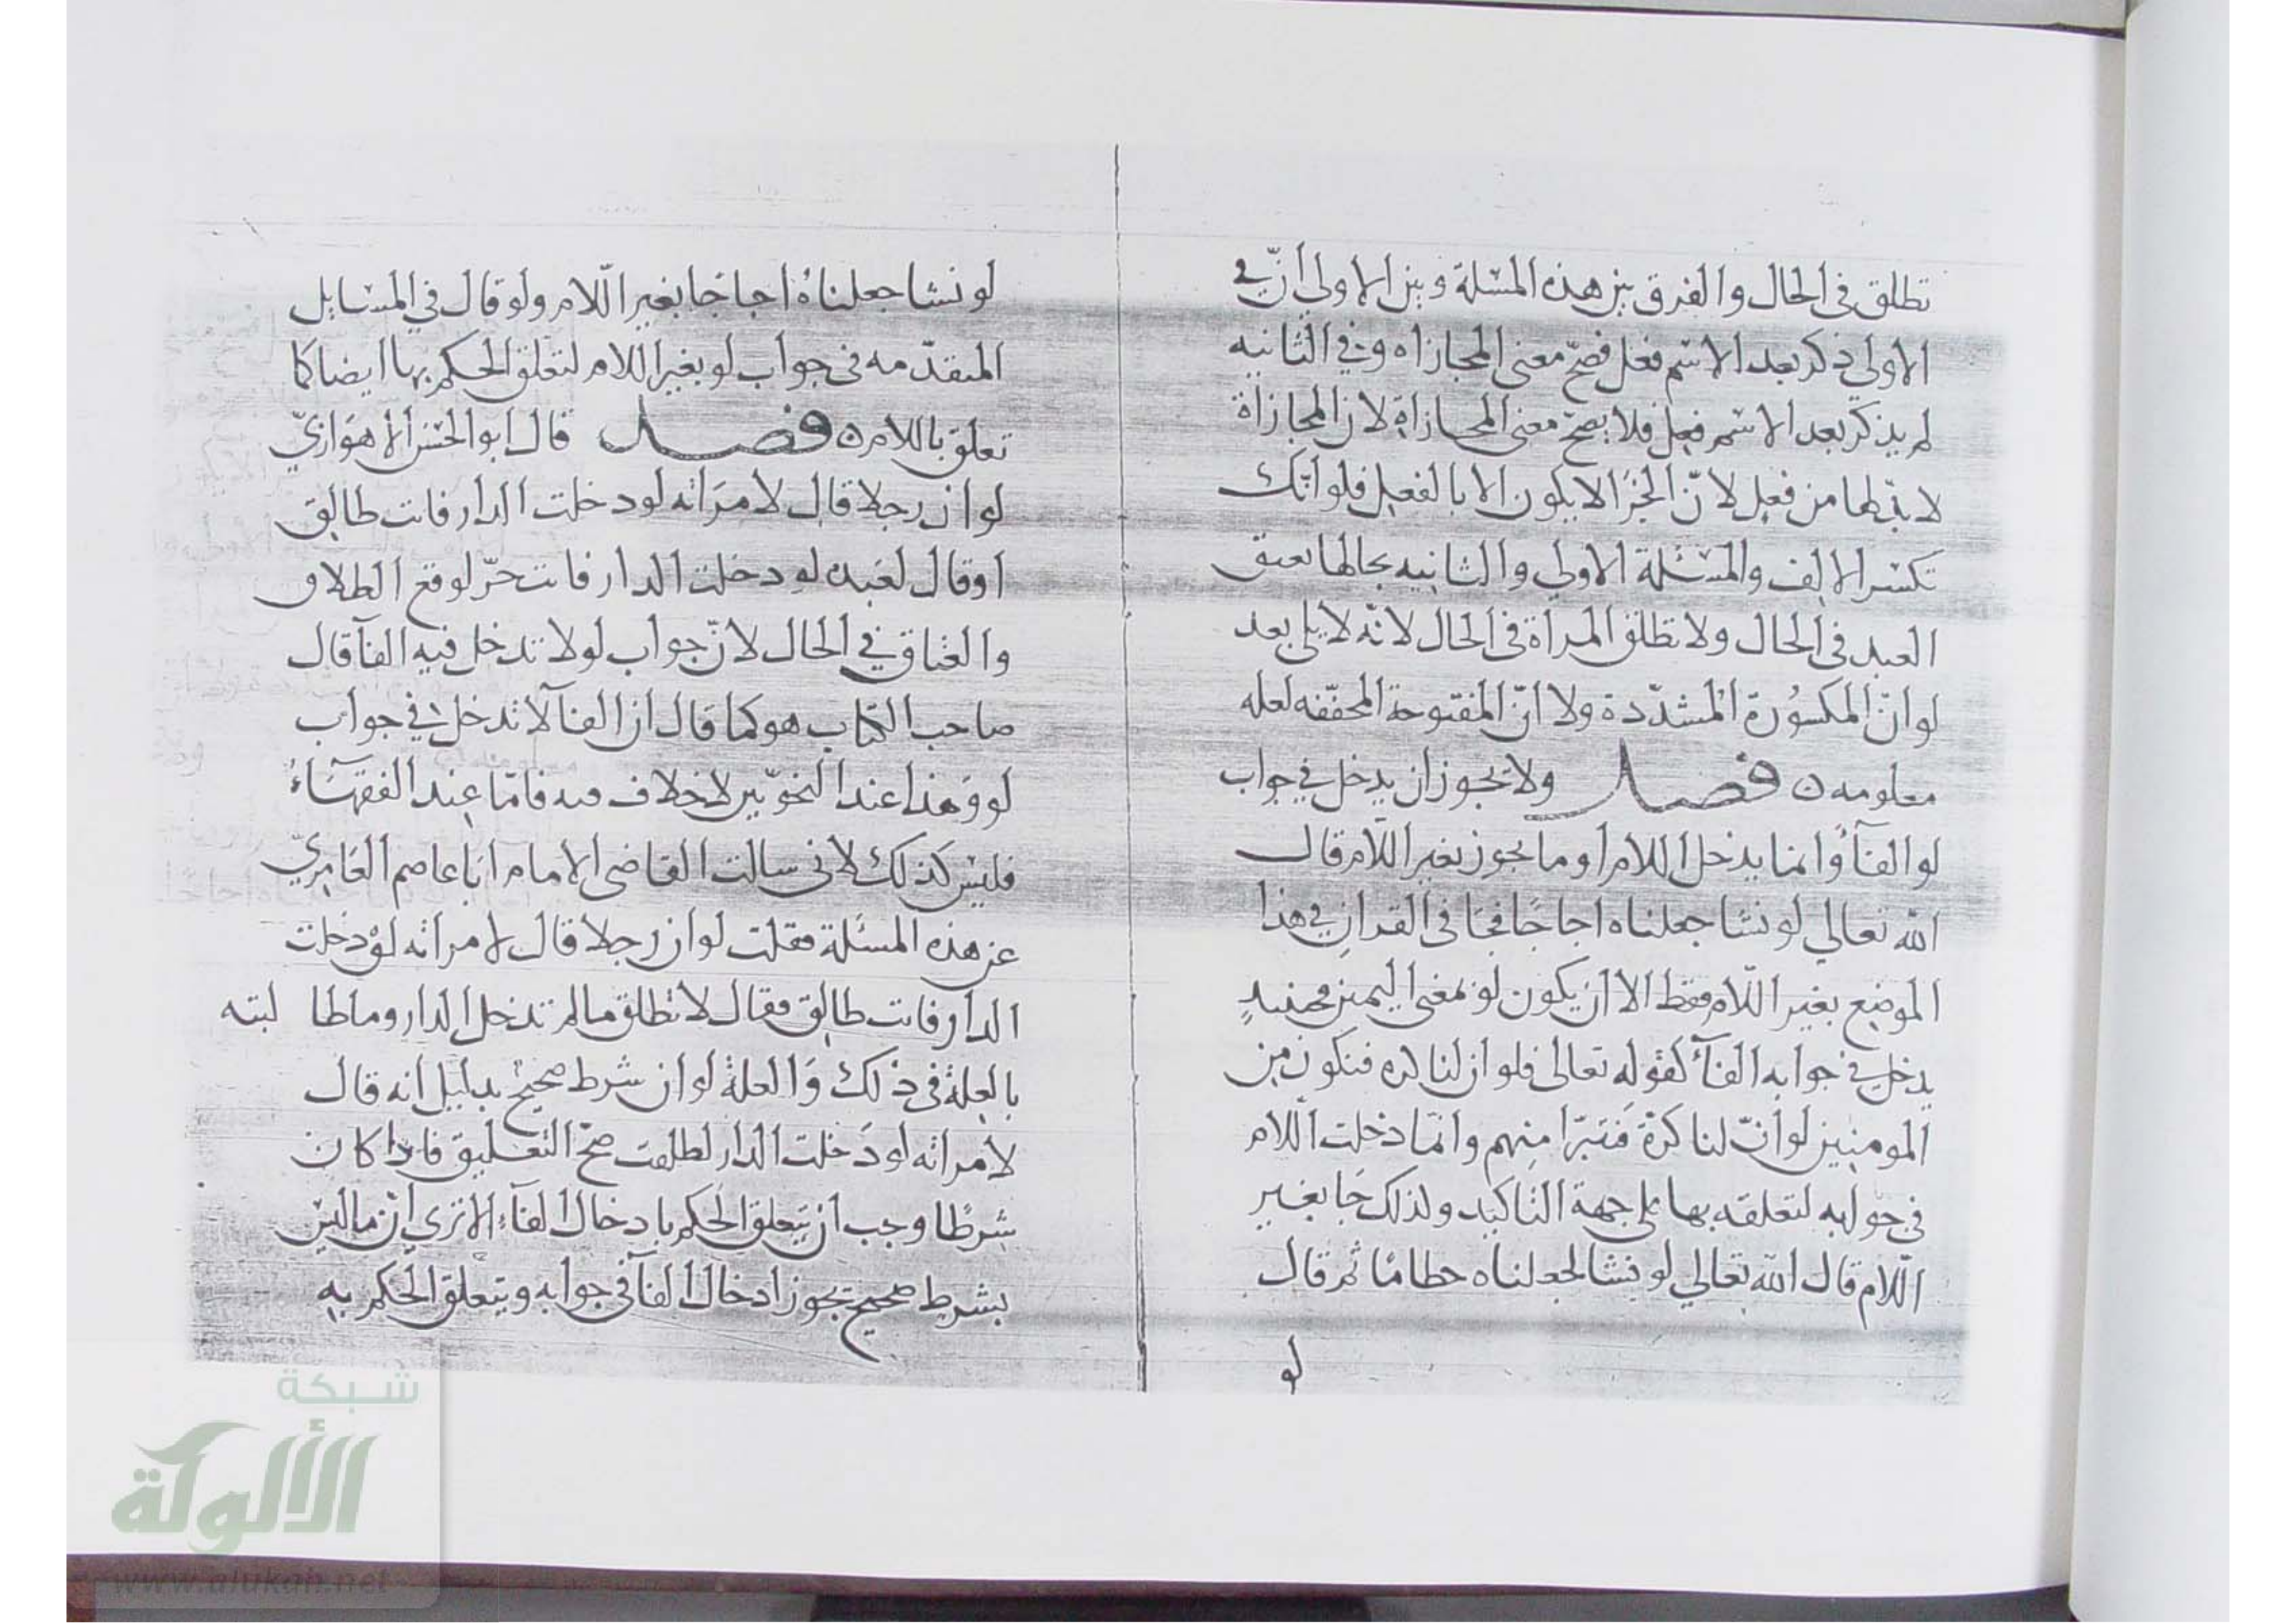 تطلق في الحال والفرق بين هذه المسئلة وبين الاولي أنّ في
الاولي ذكر بعد الاسم فعل فصحّ معنى المجازاه وفي الثانيه
لم يذكر بعد الاسم فعل فلا يصحّ معنى المجازاة لان المجازاة
لا بدّ لها من فعل لانّ الجزا لا يكون الا بالفعل فلو انّك
تكسر الالف والمسئلة الاولي والثانيه بحالها يعتق
العبد في الحال ولا تطلق المرأة في الحال لانه لا يلي بعد
لو انّ المكسورة المشدّدة ولا انّ المفتوحة المخفّفه لعله
معلومه ن فصل ولا يجوز ان يدخل في جواب
لو الفآ وانما يدخل اللام او ما يجوز بغير اللّام قال
الله تعالي لو نشا جعلناه اجاجًا فجا في القران في هذا
الموضع بغير اللّام فقط الا ان يكون لو بمعنى اليمين فحينيدٍ
يدخل في جوابه الفآ كقوله تعالى فلو ان لنا كره فنكون من
المومنين لو انّ لنا كرة فنتبرّا منهم وانّما دخلت اللام
في جوابه لتعلقه بها على جهة التاكيد ولذلك جَا بغير
اللّام قال الله تعالي لو نشا لجعلناه حطامًا ثم قال
لو
لو نشا جعلناهُ اجاجًا بغير اللّام ولو قال في المسايل
المتقدّمه في جواب لو بغير اللام لتعلّق الحكم بها ايضا كما
تعلق باللام ن فصل قال ابو الحسن الاهوازيّ
لو ان رجلا قال لامرَاته لو دخلت الدار فانت طالق
او قال لعبده لو دخلت الدار فانت حرّ لوقع الطلاق
والعتاق في الحال لانّ جواب لو لا تدخل فيه الفآ قال
صاحب الكتاب هو كما قال ان الفآ لا تدخل في جواب
لو وهذا عند النحوّيين لا خلاف فيه فامّا عند الفقهآءُ
فليس كذلك لاني سالت القاضي الامام ابا عاصم العامريّ
عن هذه المسئلة فقلت لو ان رجلا قال لامراته لو دخلت
الدار فانت طالق فقال لا تطلق مالم تدخل الدار وما طا لبته
بالعلة في ذلك وَالعلة لو ان شرط صحيحٌ بدليل انه قال
لامراته لو دَخلت الدار لطلقت صحّ التعليق فاذا كان
شرطًا وجب ان يتعلق الحكم بادخال الفآء الا تري ان ما ليس
بشرط صحيح يجوز ادخال الفآ في جوابه ويتعلق الحكم به
شبكة
الألوكة
www.alukah.net